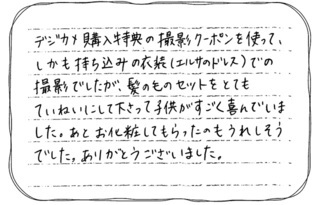 デジカメ購入特典の撮影クーポンを使って、
しかも持ち込みの衣装(エルサのドレス)での
撮影でしたが、髪のものセットをとても
ていねいにして下さって子供がすごく喜んでいま
した。あとお化粧してもらったのもうれしそう
でした。ありがとうございました。